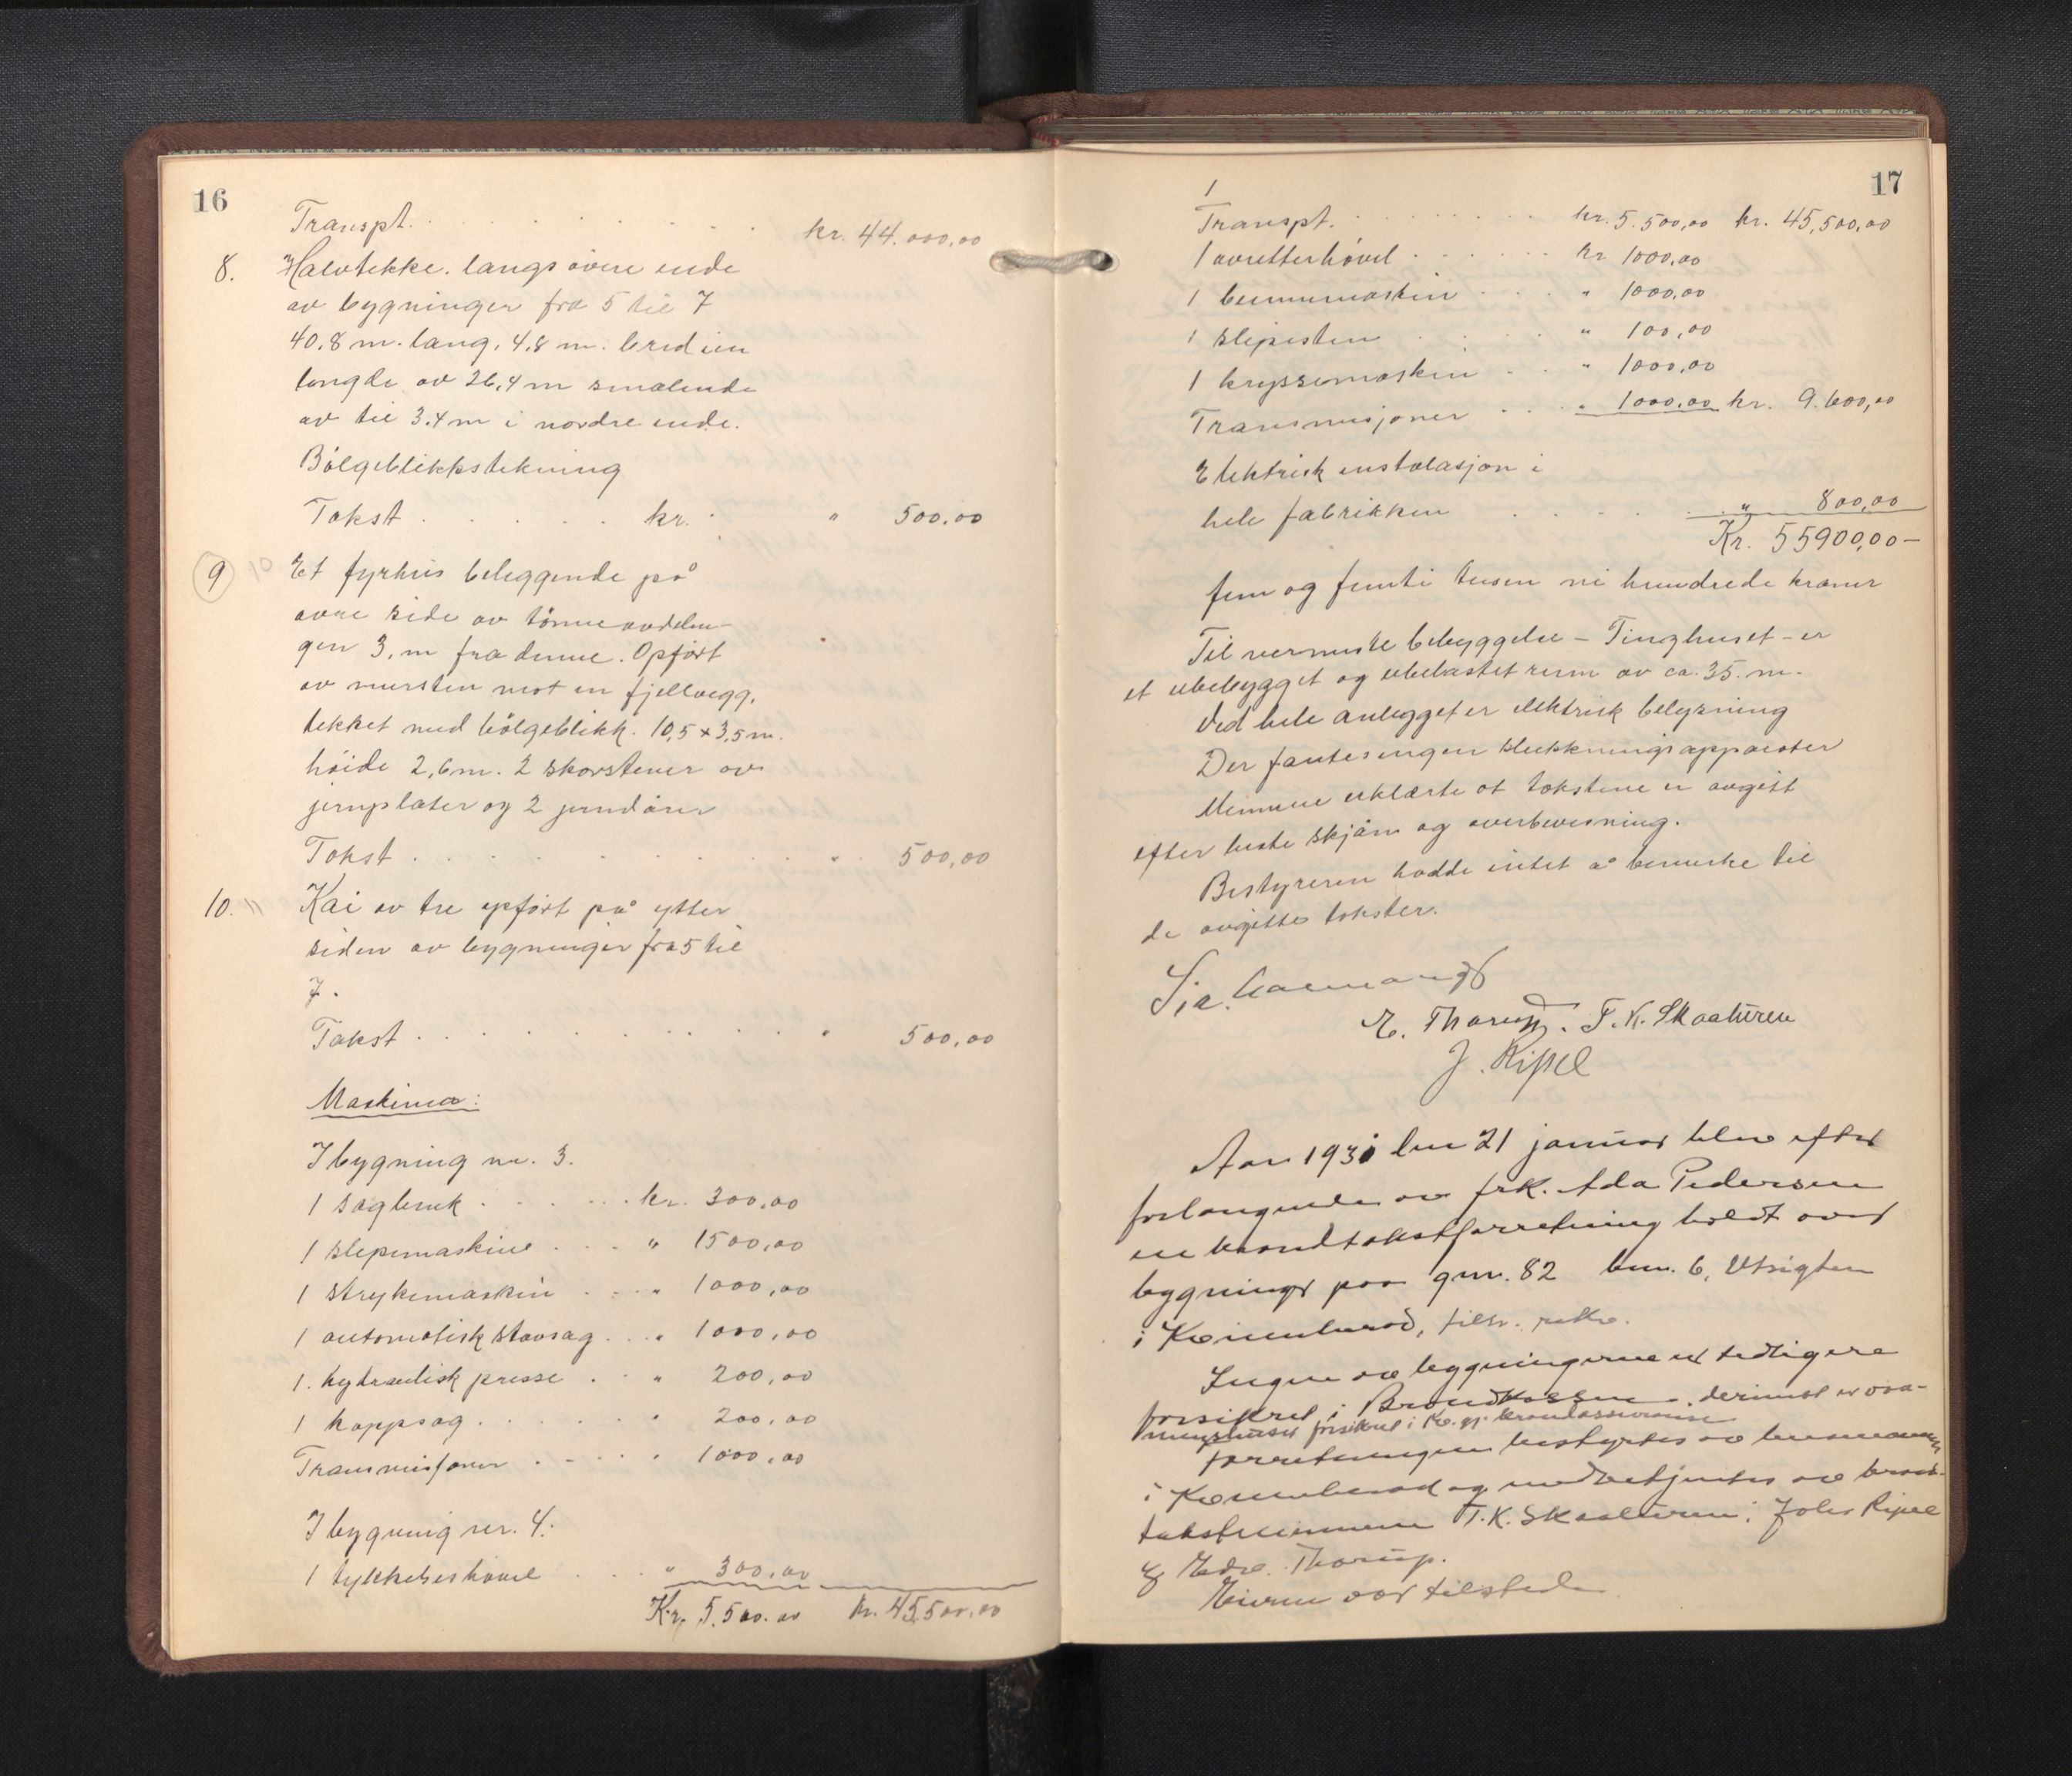 16
Transpt. kr. 44.000,00
8. Halvtekke. langs øvre ende
av bygninger fra 5 til 7
40.8 m. lang, 4,8 m. bred i en
lengde av 26,4 m smalende
av til 3.4 m i nordre ende.
Bølgeblikkstekning
Takst kr. " 500,00
9 Et fyrhus beliggende på
øvre side av tønneavdelin-
gen 3, m fra denne. Opført
av mursten mot en fjellvegg,
tekket med bølgeblikk. 10,5 x 3,5 m.
høide 2,6 m. 2 skorstener av
jernplater og 2 jerndører
Takst " 500,00
10. Kai av tre opført på ytter
siden av bygninger fra 5 til
7.
Takst " 500,00
Maskiner:
I bygning nr. 3.
1 sagbruk kr. 300,00
1 slipemaskine " 1500,00
1 strykemaskin " 1000,00
1 automatisk stavsag " 1000,00
1. hydraulisk presse " 200,00
1 kappsag " 200,00
Transmisjoner " 1000,00
I bygning nr. 4.
1 tykkelseshøvel " 300,00
Kr. 5.500.00 kr. 45,500,00
17
Transpt. kr. 5.500,00 kr. 45,500,00
1 avretterhøvel kr 1000,00
1 bunnmaskin " 1000,00
1 slipesten " 100,00
1 kryssemaskin " 1000,00
Transmisjoner " 1000,00 kr. 9.600,00
Elektrisk installasjon i
hele fabrikken " 800,00
Kr. 55900,00-
fem og femti tusen ni hundrede kroner
Til nermeste bebyggelse - Tinghuset - er
et ubebygget og ubelastet rum av ca. 35. m.
Ved hele anlegget er elektrisk belysning
Der fantes ingen slukkningsapparater
Mennene erklærte at takstene er avgitt
efter beste skjøn og overbevisning.
Bestyreren hadde intet å bemerke til
de avgitte takster.
E. Thorup. T. K. Skaaturen
J. Ripel
Aar 1931 den 21 januar blev efter
forlangende av frk. Ada Pedersen
en brandtakstforretning holdt over
bygninger paa gnr. 82 bnr. 6, Utsigten
i Kvinnherad,
Ingen av bygningerne er tidligere
forsikret i Brandkassen, derimot er vaa-
ningshuset forsikret i Kv. gj. brandassuranse
Forretningen bestyrtes av lensmannen
i Kvinnherad og medbetjentes av brand-
takstmennene T. K. Skaaturen, Johs Ripel
og Edv. Thorup.
Eieren var tilstede